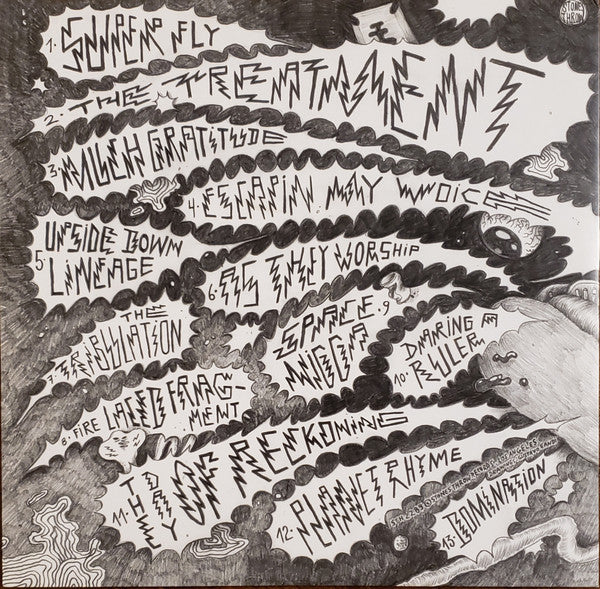 STONES THROW
1. SUPER FLY
2. THE TREATMENT
3. MUCH GRATITUDE
4. ESCAPIN MY VOICES
5. UPSIDE DOWN
LINEAGE
6. AS THEY WORSHIP
7. THE
TRIBULATION
8. FIRE LACED FRAG-
MENT
SPACE 9.
NIGGA
10. DARING A
RULER
11. THE DAY OF RECKONING
12. PLANET RHYME
STONES THROW LOS ANGELES
13. DOMINATION